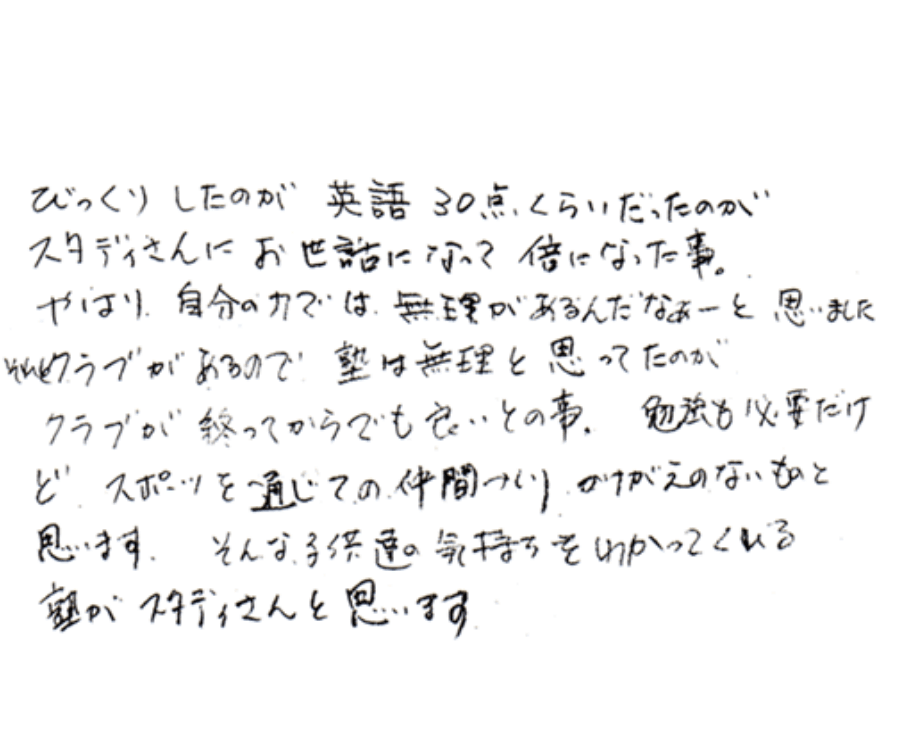 びっくりしたのが 英語 30点くらいだったのが
スタディさんに お世話になって 倍になった事。
やはり 自分の力では 無理があるんだなぁーと 思いました
それとクラブがあるので 塾は無理と思ってたのが
クラブが 終ってからでも良いとの事。 勉強も必要だけ
ど スポーツを通じての仲間づくり かけがえのないものと
思います。 そんな子供達の気持ちをわかってくれる
塾が スタディさんと思います